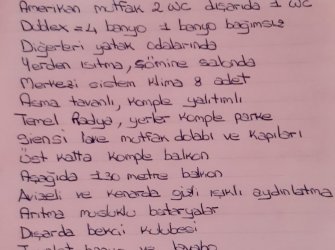 Amerikan mutfak 2 WC dışarıda 1 WC
Dublex = 4 banyo 1 banyo bağımsız
Diğerleri yatak odalarında
Yerden ısıtma, şömine salonda
Merkezi sistem klima 8 adet
Asma tavanlı, komple yalıtımlı
Temel Radya, yerler komple parke
lake mutfak dolabı ve kapıları
Üst katta komple balkon
Aşağıda 130 metre balkon
Avizeli ve kenarda gizli ışıklı aydınlatma
Arıtma musluklu bataryalar
Dışarda bekçi kulubesi